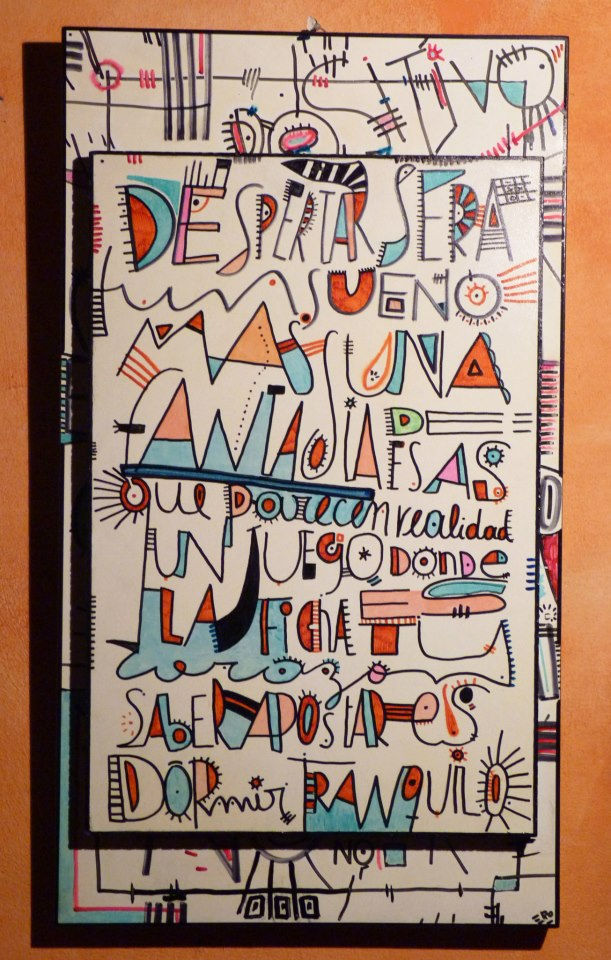 DESPERTAR SERA
un SUENO
MAS UNA
FANTASIA DE
ESAS
que parecen realidad
UN JUEGO DONDE
LA FICHA
SABER APOSTAR ES
DORmir TRANQUILO
NO